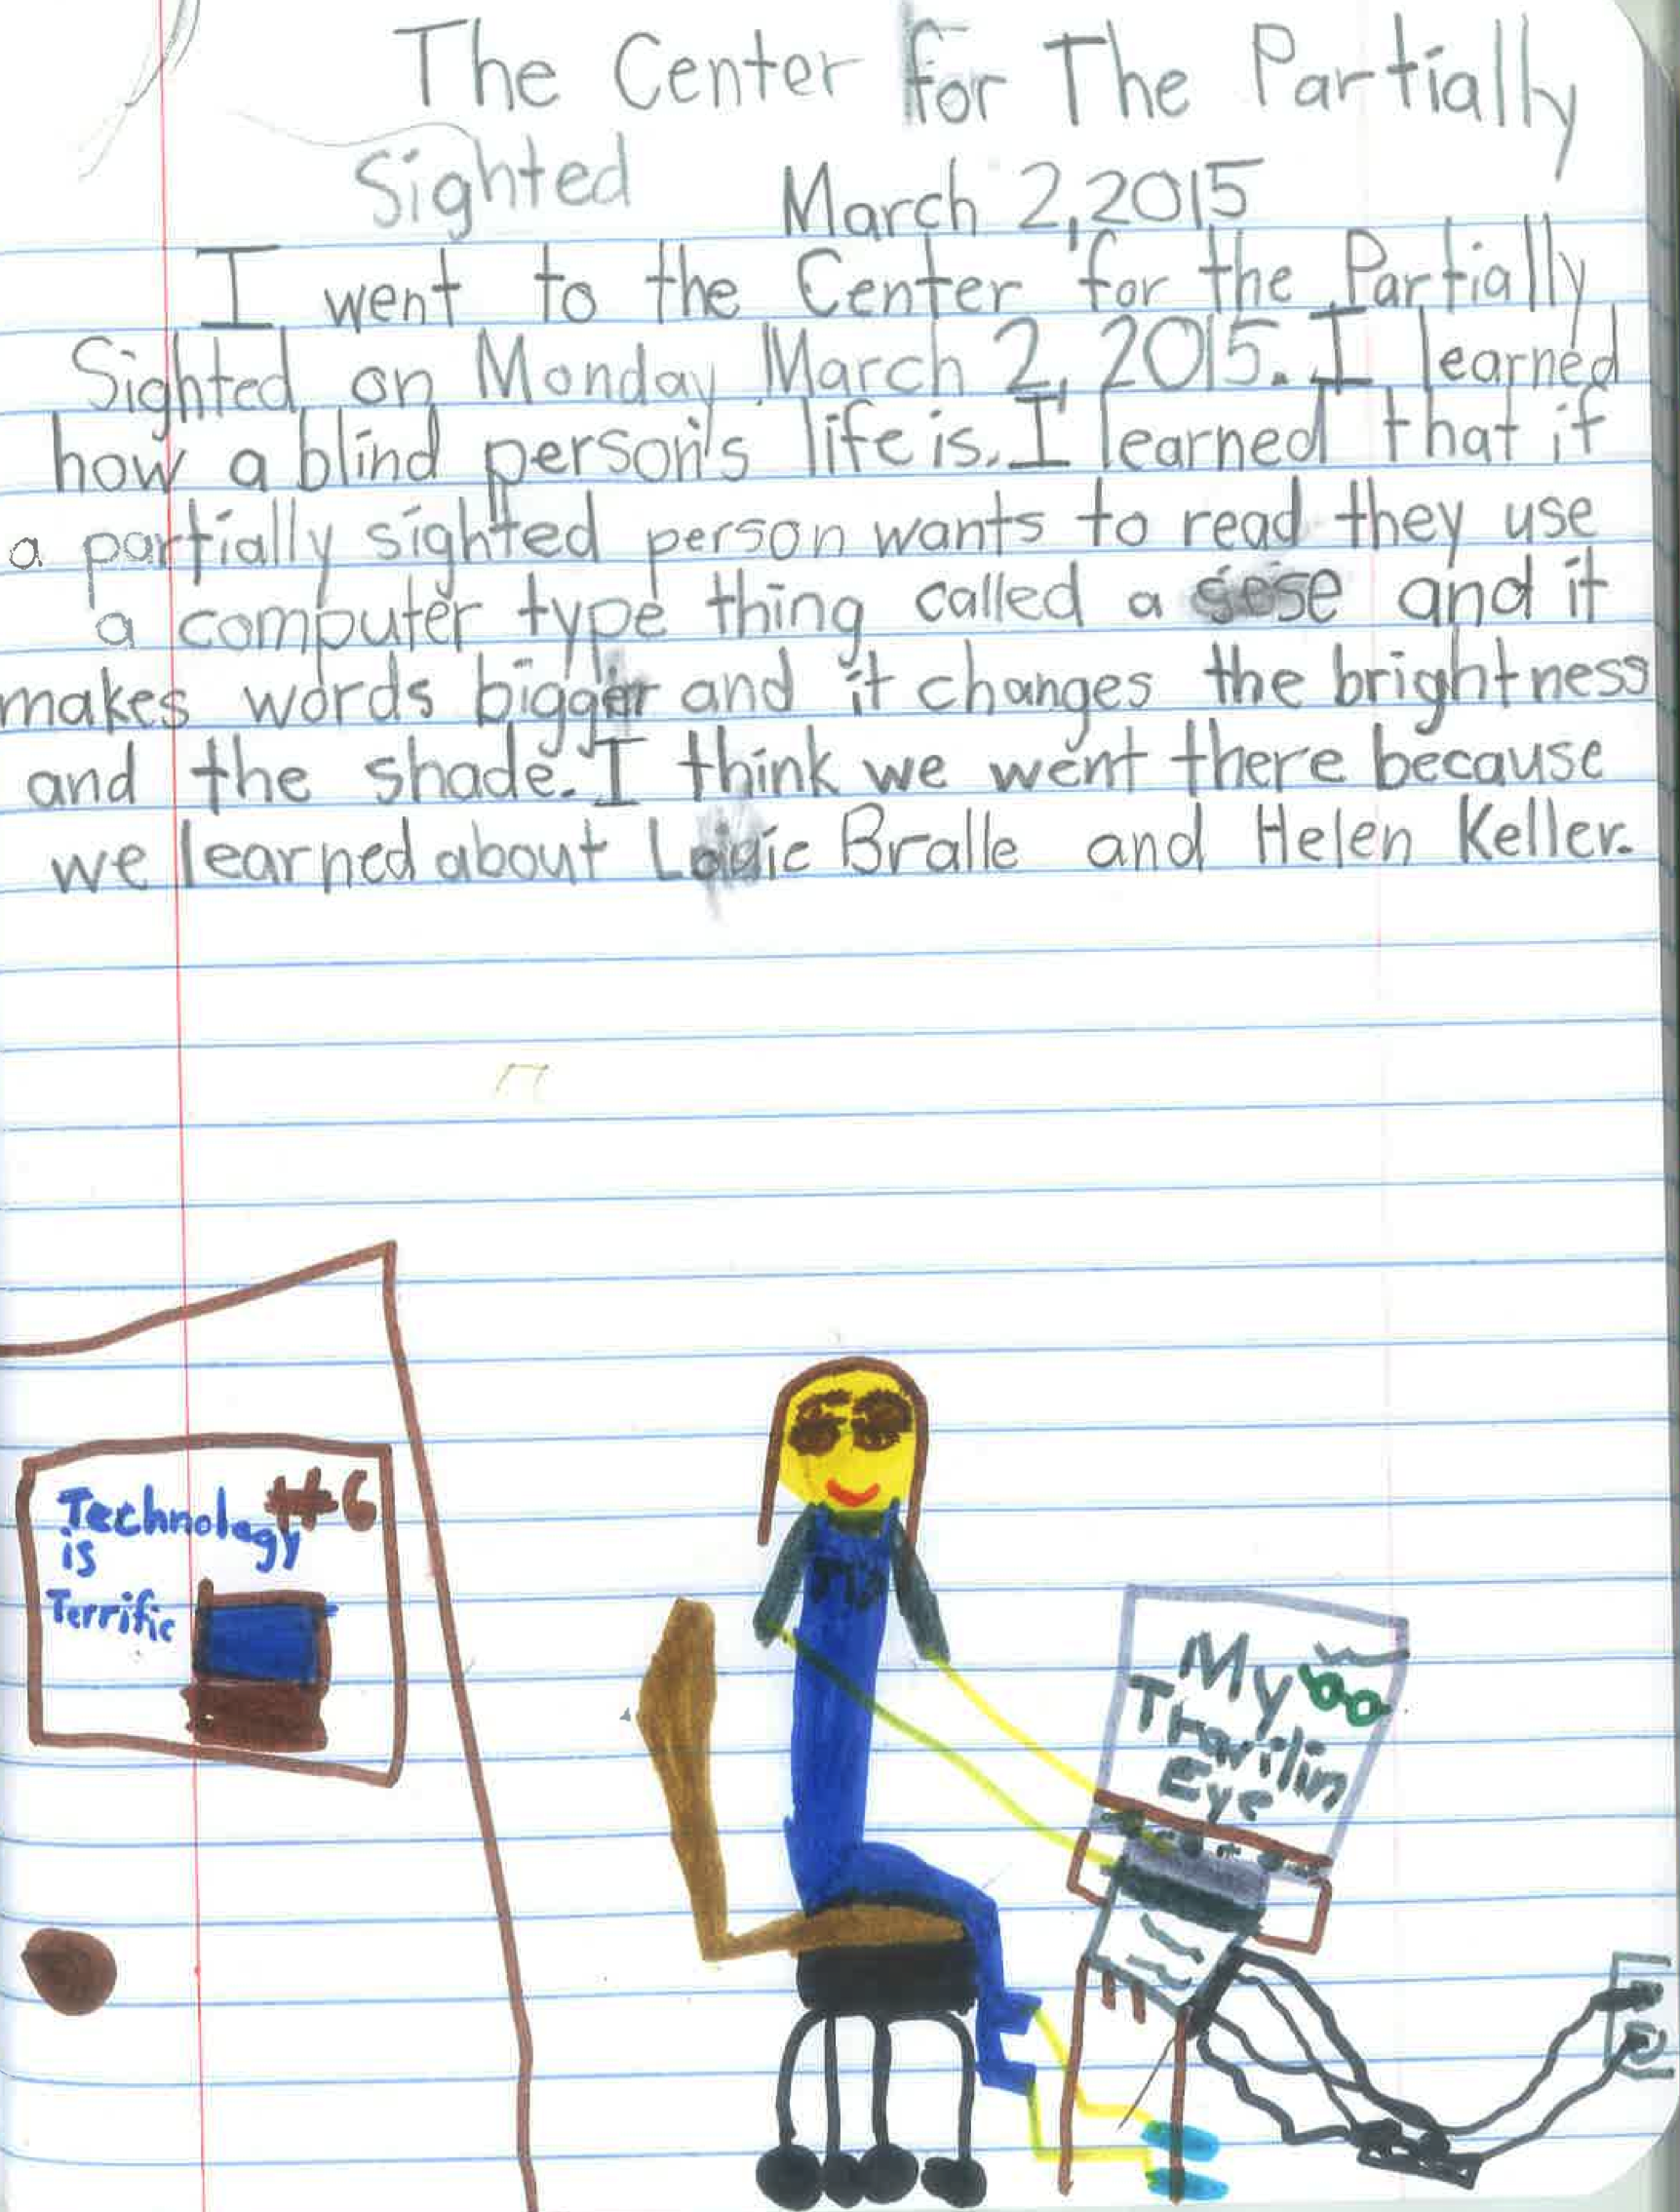 The Center For The Partially
Sighted March 2, 2015
I went to the Center for the Partially
Sighted on Monday March 2, 2015. I learned
how a blind person's life is. I learned that if
a partially sighted person wants to read they use
a computer type thing called a sese and it
makes words bigger and it changes the brightness
and the shade. I think we went there because
we learned about Bralle and Helen Keller.
Technology #6
is
Terrific
My
Travilin
Eye